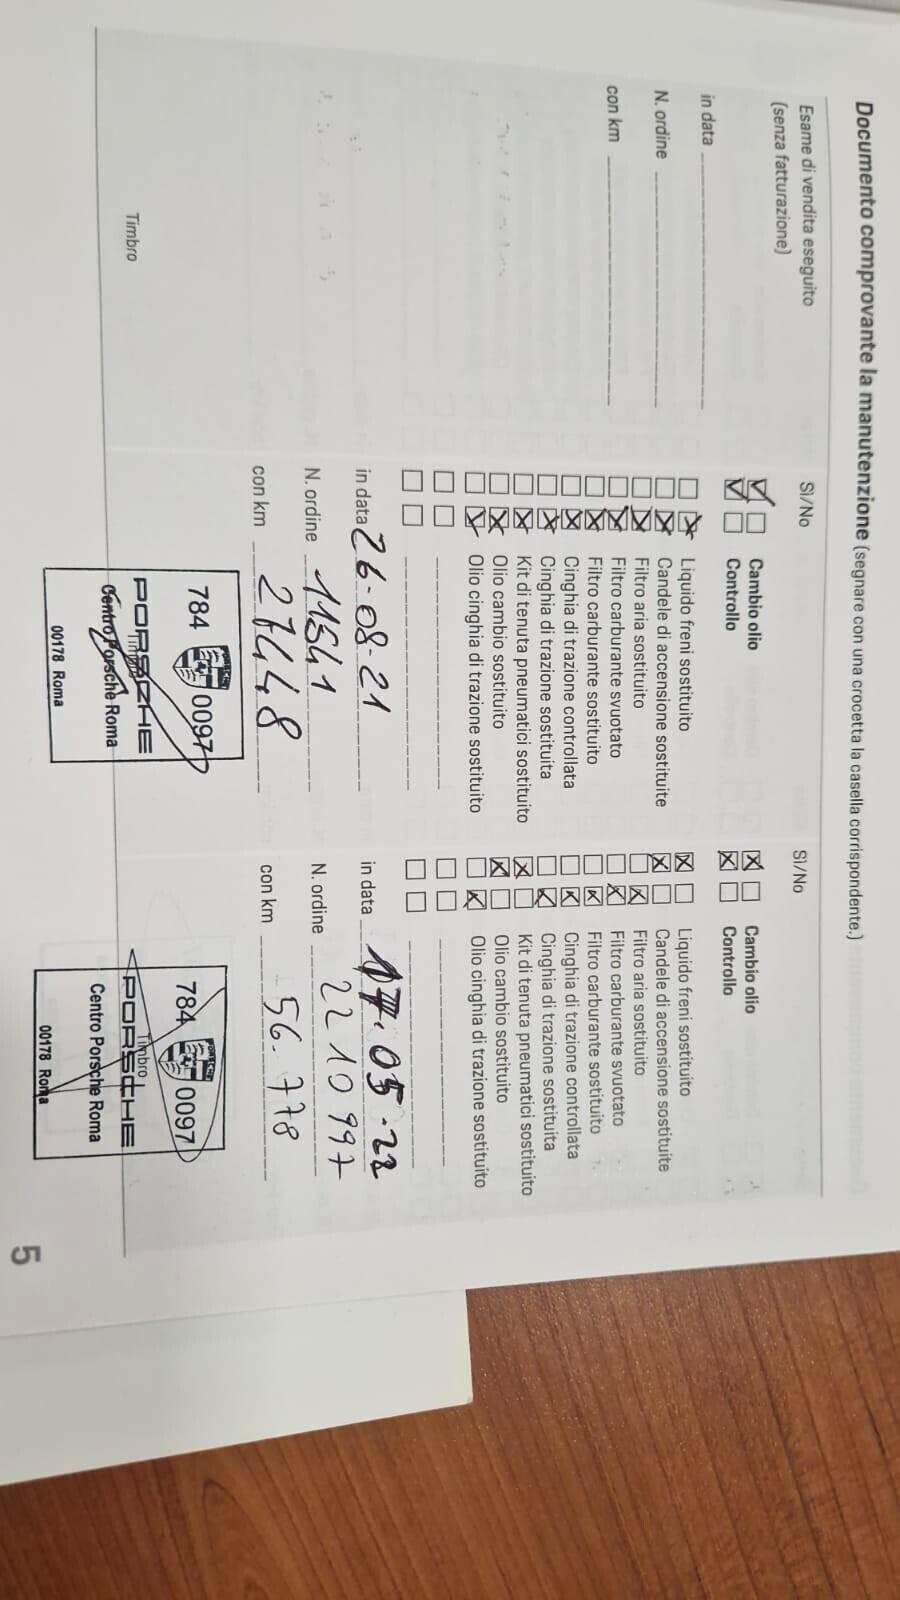 Documento comprovante la manutenzione (segnare con una crocetta la casella corrispondente.)
Esame di vendita eseguito
(senza fatturazione)
in data
N. ordine
con km
Timbro
Sì/No
Cambio olio
Controllo
Liquido freni sostituito
Candele di accensione sostituite
Filtro aria sostituito
Filtro carburante svuotato
Filtro carburante sostituito
Cinghia di trazione controllata
Cinghia di trazione sostituita
Kit di tenuta pneumatici sostituito
Olio cambio sostituito
Olio cinghia di trazione sostituito
in data 26-08-21
N. ordine 11541
con km 27448
784 0097
PORSCHE
Timbro
Centro Porsche Roma
00178 Roma
Sì/No
Cambio olio
Controllo
Liquido freni sostituito
Candele di accensione sostituite
Filtro aria sostituito
Filtro carburante svuotato
Filtro carburante sostituito
Cinghia di trazione controllata
Cinghia di trazione sostituita
Kit di tenuta pneumatici sostituito
Olio cambio sostituito
Olio cinghia di trazione sostituito
in data 17.05.22
N. ordine 2210997
con km 56.778
784 0097
Timbro
PORSCHE
Centro Porsche Roma
00178 Roma
5